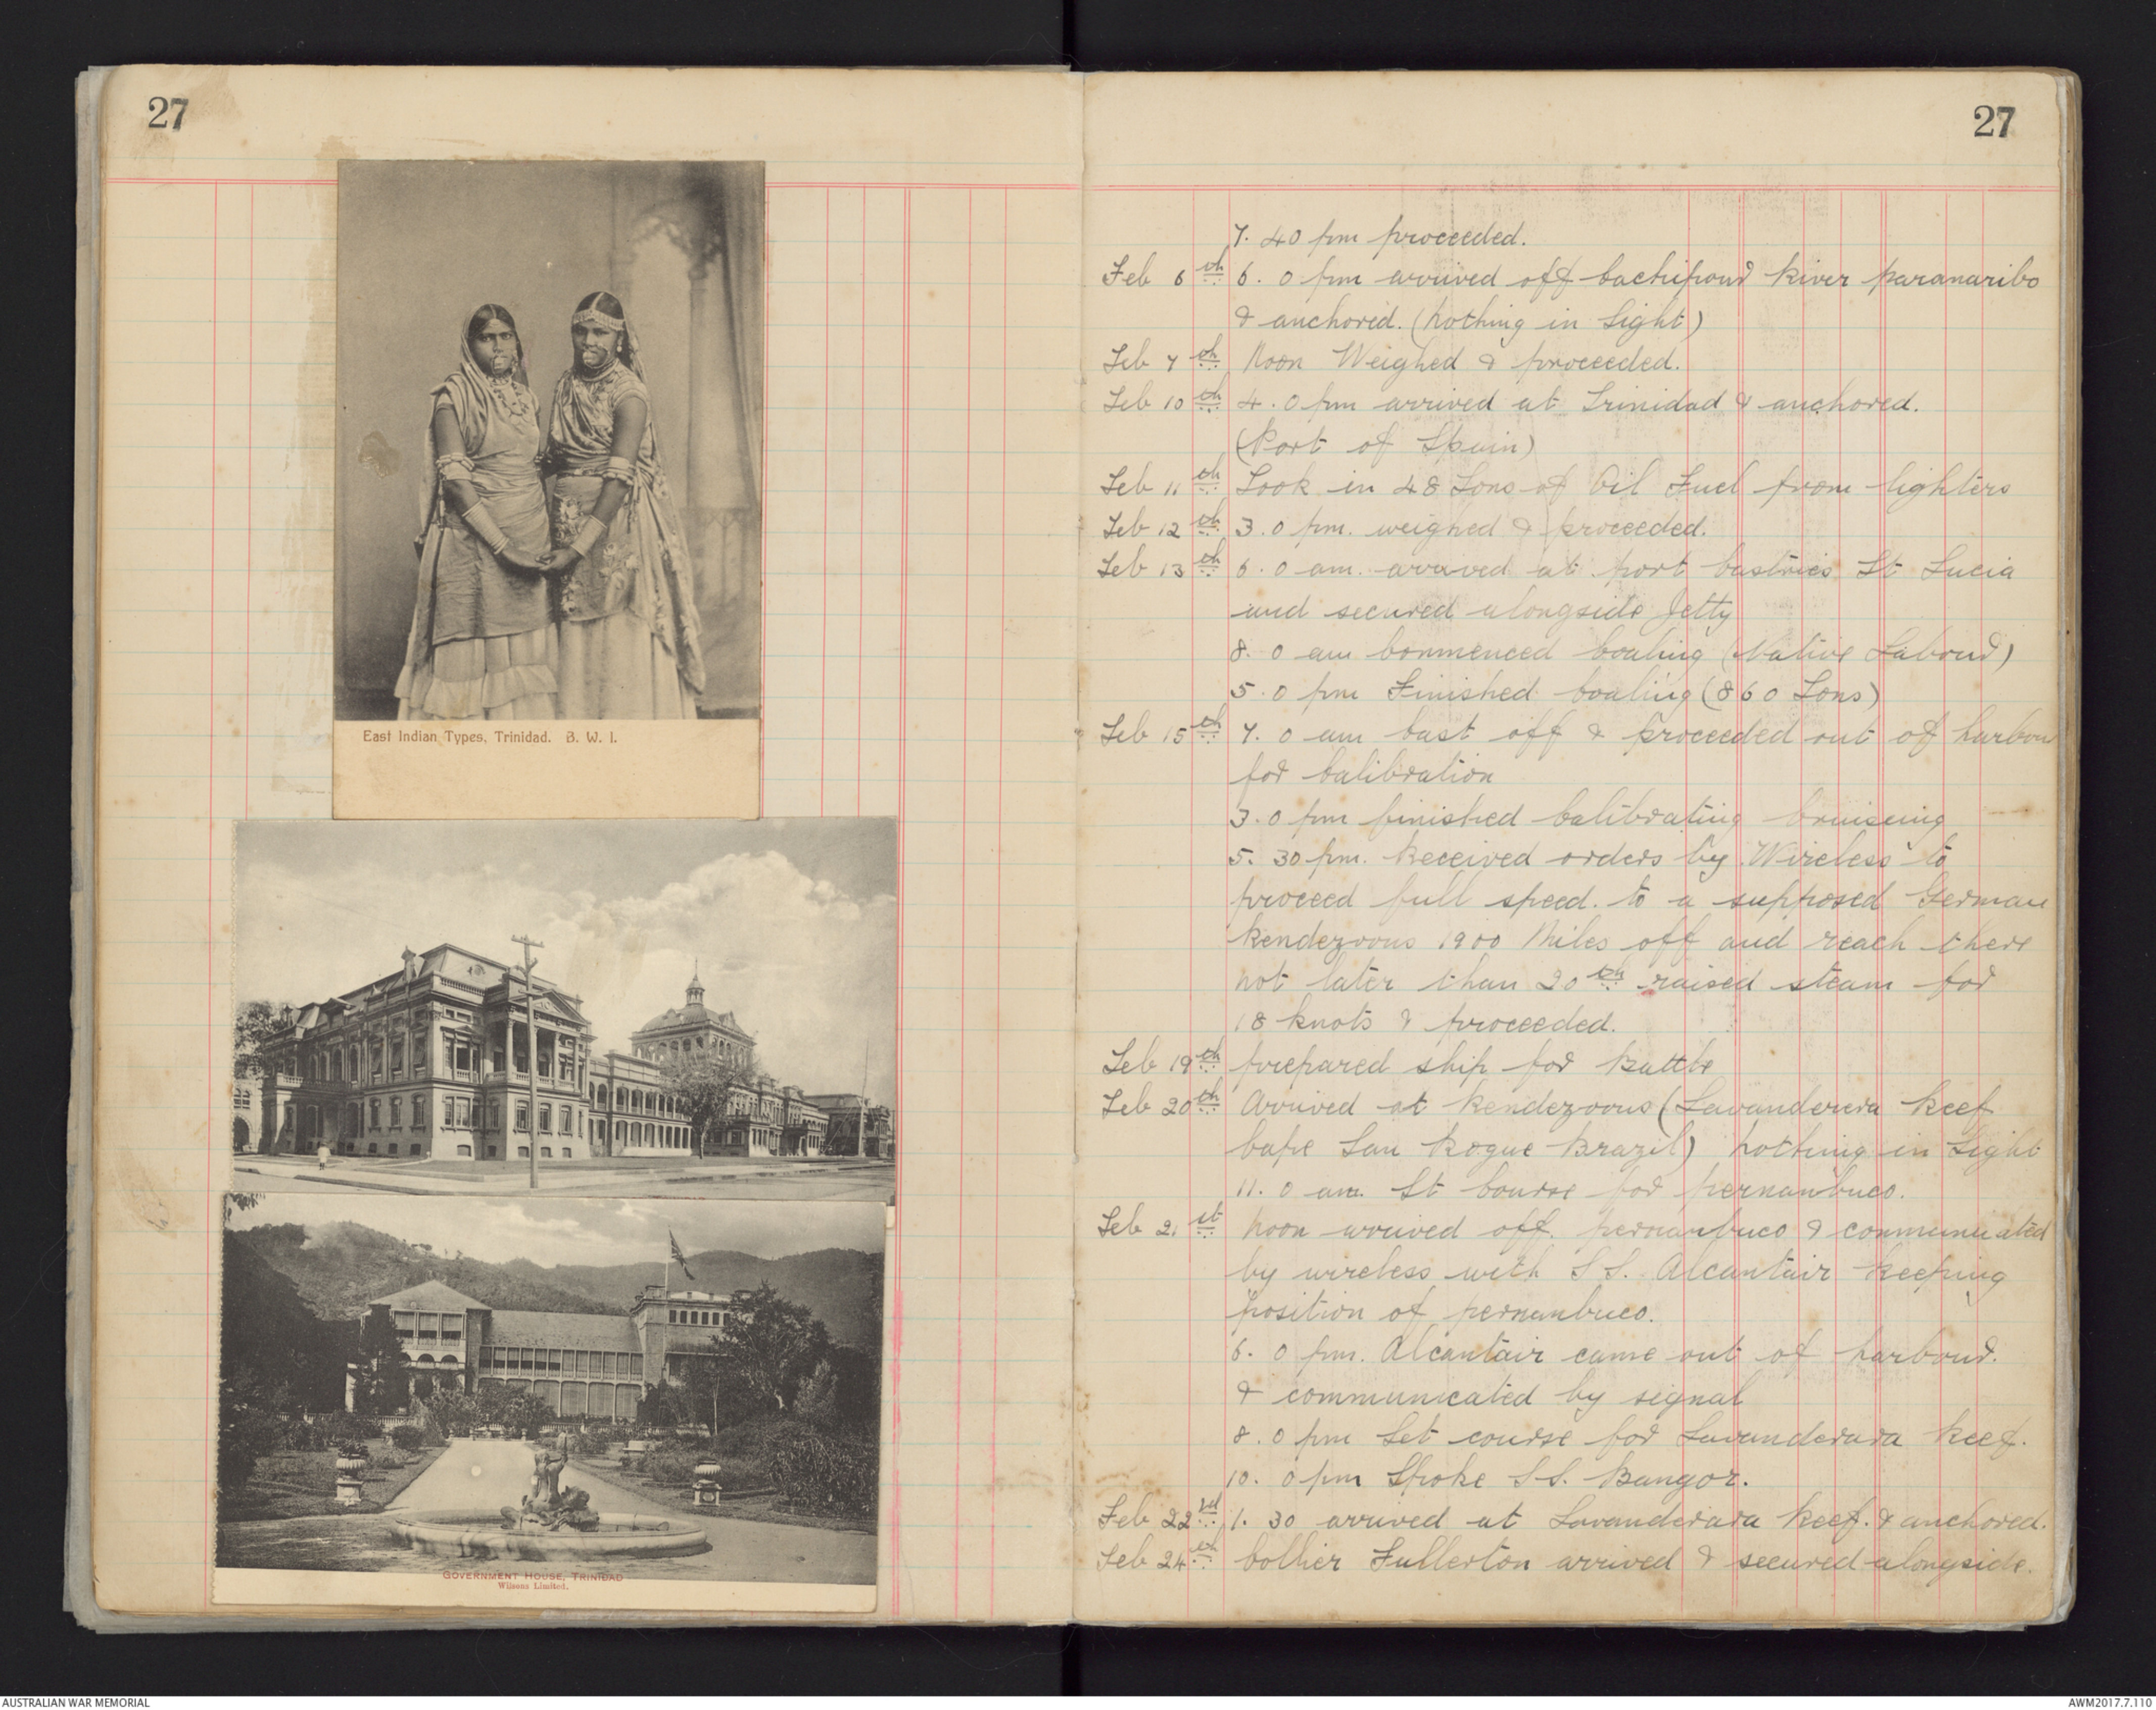 27
East Indian Types, Trinidad. B. W. I.
GOVERNMENT HOUSE, TRINIDAD
Wilsons Limited.
27
7. 40 pm proceeded.
Feb 6th 6. 0 pm arrived off River paranaribo
& anchored. (nothing in Sight)
Feb 7th Noon Weighed & proceeded.
Feb 10th 4. 0 pm arrived at Trinidad & anchored.
(Port of Spain)
Feb 11th Took in 48 Tons of Oil Fuel from lighters
Feb 12th 3. 0 pm. weighed & proceeded.
Feb 13th 6. 0 am. arrived at port Castries St Lucia
and secured alongside Jetty
8. 0 am Commenced Coaling (Native Labour)
5. 0 pm Finished Coaling (860 Tons)
Feb 15th 7. 0 am Cast off & proceeded out of harbour
for Calibration
3. 0 pm finished Calibrating Cruiseing
5. 30 pm. Received orders by Wireless to
proceed full speed. to a supposed German
Rendezvous 1900 Miles off and reach there
not later than 20th raised steam for
18 knots & proceeded.
Feb 19th prepared ship for Battle
Feb 20th Arrived at Rendezvous (Lavanderera Reef
Cape San Rogue Brazil) nothing in Sight
11. 0 am. St Course for pernanbuco.
Feb 21st noon arrived off pernanbuco & communicated
by wireless with S S. Alcantair keeping
position of pernanbuco.
6. 0 pm. Alcantair came out of harbour.
& communicated by signal
8. 0 pm Set course for Lavanderara Reef.
10. 0 pm Spoke S S. Bangor.
Feb 22nd 1. 30 arrived at Lavanderara Reef. & anchored.
Feb 24th Collier Fullerton arrived & secured alongside.
AUSTRALIAN WAR MEMORIAL
AWM2017.7.110